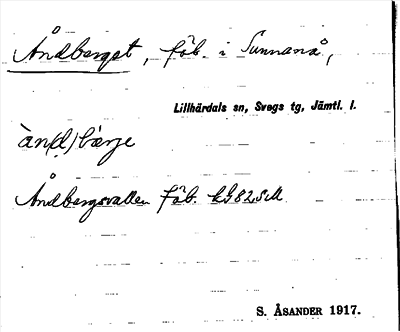 Åndberget, fäb. i Sunnanå,
Lillhärdals sn, Svegs tg, Jämtl. l.
àn(d)bærje
Åndbergsvallen fäb.
S. ÅSANDER 1917.